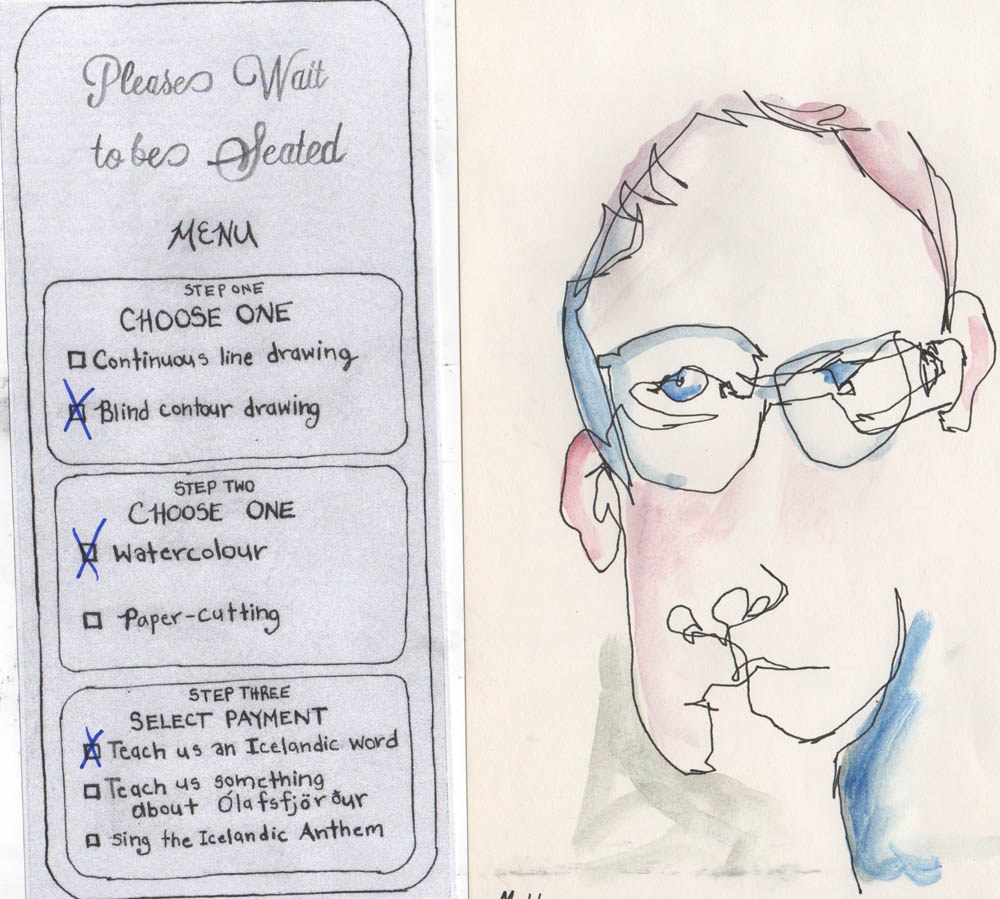 Please Wait
to be Seated
MENU
STEP ONE
CHOOSE ONE
Continuous line drawing
Blind contour drawing
STEP TWO
CHOOSE ONE
Watercolour
Paper-cutting
STEP THREE
SELECT PAYMENT
Teach us an Icelandic word
Teach us something
about Ólafsfjörður
Sing the Icelandic Anthem